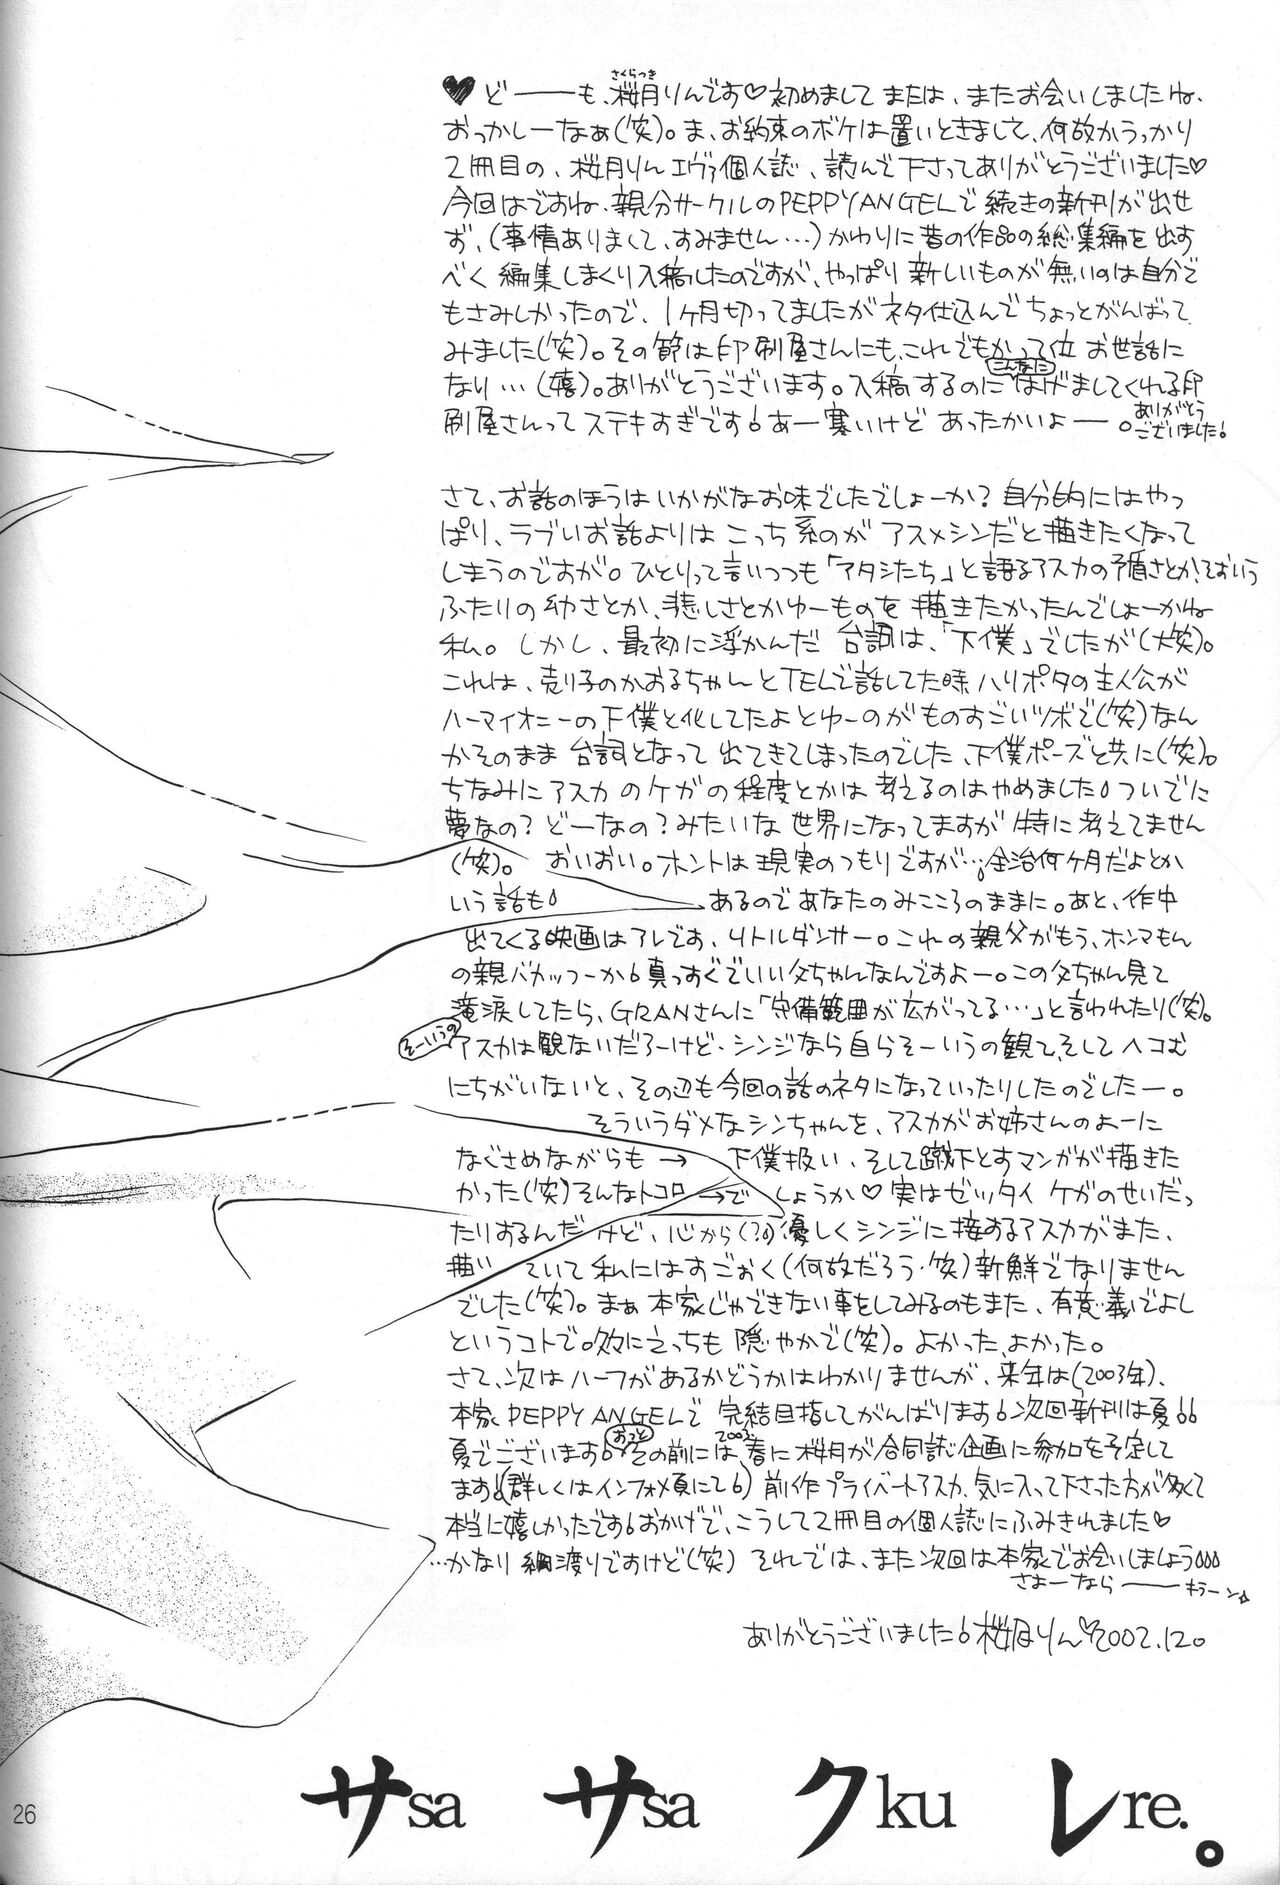 さくらつき
♥ど──も、桜月りんです♡初めまして または、またお会いしましたね。
おっかしーなぁ(笑)。ま、お約束のボケは置いときまして、何故かうっかり
2冊目の、桜月りん エヴァ個人誌、読んで下さってありがとうございました♡
今回はですね、親分サークルのPEPPY ANGELで続きの新刊が出せ
ず、(事情ありまして、すみません…)かわりに昔の作品の総集編を出す
べく 編集しまくり入稿したのですが、やっぱり 新しいものが無いのは自分で
もさみしかったので、1ヶ月切ってましたがネタ仕込んでちょっとがんばって
みました(笑)。その節は印刷屋さんにも、これでもかって位 お世話に
なり…(嬉)。ありがとうございます。入稿するのに こんなに はげましてくれる印
刷屋さんって ステキすぎです! あー寒いけど あったかいよー。 ありがとう
ございました!
さて、お話のほうは いかがなお味でしたでしょーか? 自分的にはやっ
ぱり、ラブいお話よりは こっち系のが アスメシンだと描きたくなって
しまうのですが。ひとりって言いつつも「アタシたち」と語るアスカの矛盾さとか、そおいう
ふたりの幼さとか、悲しさとかゆーものを 描きたかったんでしょーかね
私。しかし、最初に浮かんだ 台詞は、「下僕」でしたが(大笑)。
これは、売り子のかおるちゃんとTELで話してた時 ハリポタの主人公が
ハーマイオニーの下僕と化してたよとゆーのがものすごいツボで(笑)なん
かそのまま 台詞となって 出てきてしまったのでした、下僕ポーズと共に(笑)。
ちなみに アスカ のケガの程度とかは 考えるのはやめました! ついでに
夢なの? どーなの? みたいな 世界になってますが 特に考えてません
(笑)。 おいおい。ホントは現実のつもりですが…; 全治何ヶ月だよとか
いう話も! あるので あなたのみこころのままに。あと、作中
出てくる映画はアレです、リトルダンサー。これの親父がもう、ホンマもん
の親バカッつーか! 真っすぐでいい父ちゃんなんですよー。この父ちゃん見て
滝涙してたら、GRANさんに「守備範囲が広がってる…」と言われたり(笑)。
そーいうの アスカは観ないだろーけど、シンジなら自らそーいうの観て、そしてヘコむ
にちがいないと、その辺も今回の話のネタになっていったりしたのでしたー。
そういうダメなシンちゃんを、アスカがお姉さんのよーに
なぐさめながらも → 下僕扱い、そして蹴下とすマンガが描きた
かった(笑)そんなトコロ→で しょうか♡ 実はゼッタイ ケガのせいだっ
たりするんだけど、心から(?!)優しくシンジに接するアスカがまた、
描い ていて 私にはすごおく(何故だろう・笑)新鮮でなりません
でした(笑)。まぁ本家じゃできない事をしてみるのもまた、有意義でよし
というコトで。久々にえっちも 穏やかで(笑)。よかった、よかった。
さて、次は ハーフがあるかどうかはわかりませんが、来年は(2003年)、
本家PEPPY ANGELで 完結目指してがんばります! 次回新刊は夏!!
夏でございます! おっと その前には、2003. 春に桜月が合同誌企画に参加を予定して
ます!(詳しくはインフォメ頁にて!) 前作プライベートアスカ、気に入って下さった方が多くて
本当に嬉しかったです! おかげで、こうして2冊目の個人誌にふみきれました♡
…かなり 綱渡りですけど(笑) それでは、また次回は本家でお会いしましょう!!!
さよーなら───キラーン☆
ありがとうございました! 桜月りん♡2002.12.
サsa サsa クku レre.。
26